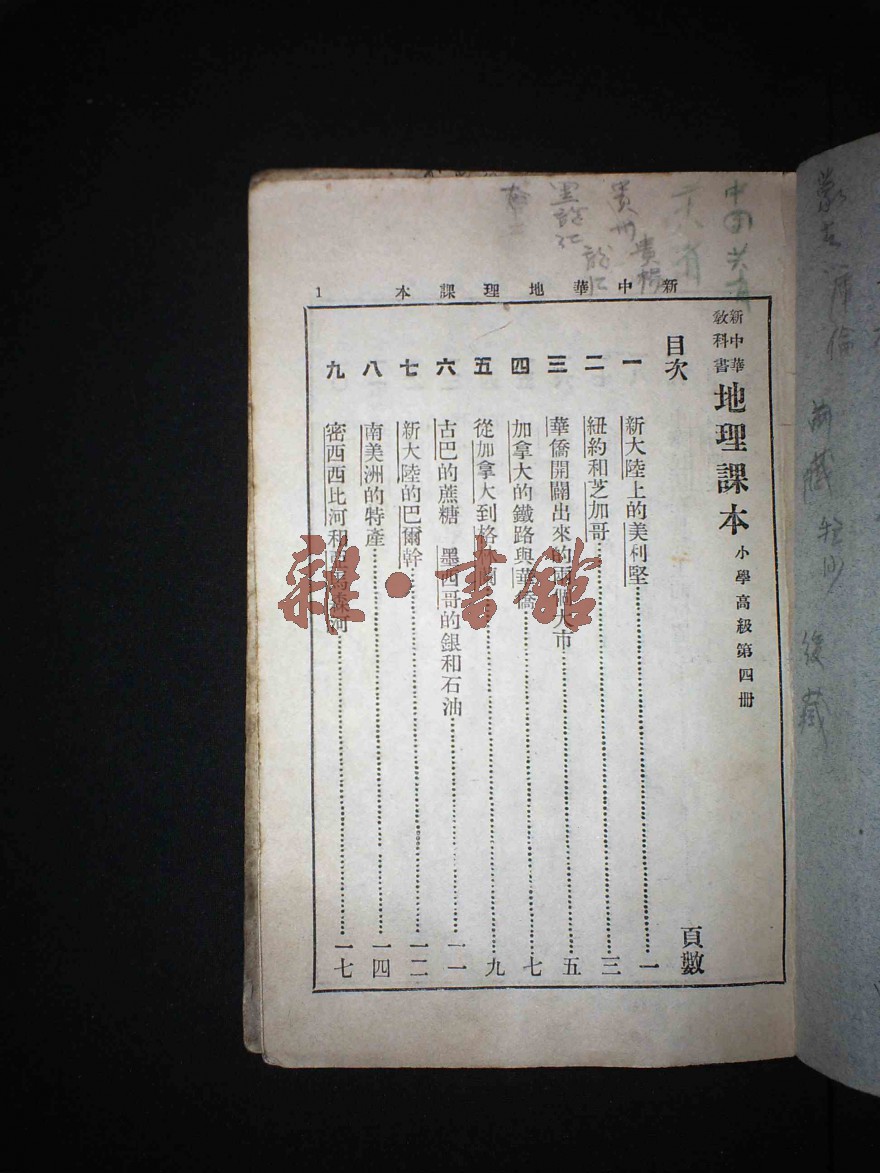 新中華地理課本 1
新中華
教科書
地理課本 小學高級第四冊
目次 頁數
一 新大陸上的美利堅 一
二 紐約和芝加哥 三
三 華僑開闢出來的兩個大市 五
四 加拿大的鐵路與華僑 七
五 從加拿大到格 蘭 九
六 古巴的蔗糖 墨西哥的銀和石油 一一
七 新大陸的巴爾幹 一二
八 南美洲的特產 一四
九 密西西比河和亞馬森河 一七
雜·書館
貴州 貴陽
後藏